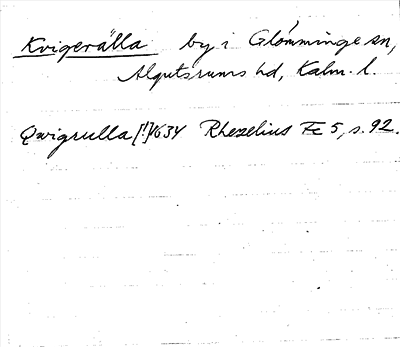 Kvigerälla by i Glömminge sn,
Algutsrums hd, Kalm. l.
Qvigrulla [!] 1634 Rhezelius Fc 5, s. 92.